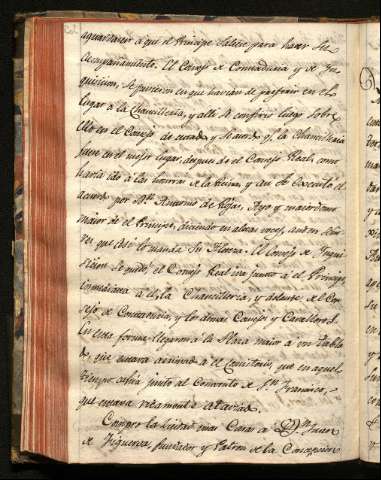 aguardaron a que el Principe saliese para hacer su
Acompañamiento. El Consejo de Contaduria y de In-
quisicion, se pusieron en que havian de preferir en el
lugar a la Chancilleria, y alli se confirio luego sobre
ello en el Consejo de estado, y se acordo q.e la Chancilleria
fuese en el mejor lugar, despues de el Consejo Real, como
havia ido a las honrras de la Reina, y asi se executó el
acuerdo por D.n Antonio de Rojas, Ayo y maiordomo
maior de el Principe, diciendo en altas voces, oid Seño-
res que esto lo manda Su Alteza. El Consejo de Inqui-
sicion se quedó, el Consejo Real iva junto a el Principe,
inmediata a él la Chancilleria, y delante el Con-
sejo de Contaduria, y los demas Consejos y Cavalleros.
En esta forma llegaron a la Plaza maior a un tabla-
do, que estava arrimado a el Consistorio, que en aquel
tiempo estava junto al Convento de S.n Francisco,
que estava ricamente ataviado.
Compró la Ciudad unas Casas a D.n Juan
de Figueroa, fundador y Patron de la Concepcion